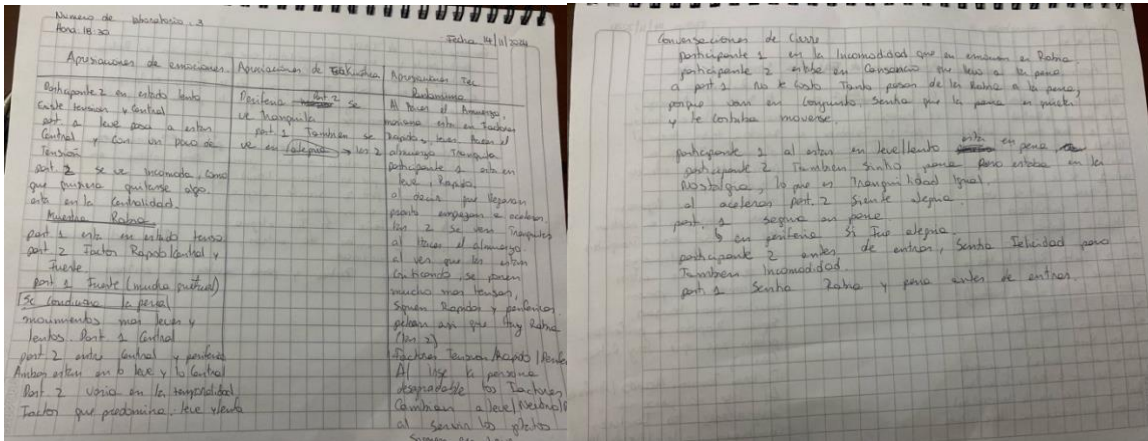 Numero de laboratorio. 3
Hora 18:30
Fecha 14/11/2024
Apreciaciones de emociones
Participante 2 en estado lento
Existe tension y Central
part 1 leve pasa a estar
Central y con un poco de
Tensión
part. 2 se ve incomoda, como
que quisiera quitarse algo
esta en la Centralidad.
Muestra Rabia
part 1 esta en estado tenso
part 2 Factor Rapido/Central y
Fuerte
part 1 Fuerte (mucha
Se conduce la pena
movimientos mas leves y
lentos. Part 1 Central
part 2 entre Central y periferia
Ambos estan en lo leve y lo Central
Part 2 varia en la temporalidad
Factor que predomina, leve y lento
Apreciaciones de
Periferia part. 2 se
ve tranquila
part. 1 Tambien se
ve en alegria → los 2
Apreciaciones del
Al hacer el Almuerzo,
estan en Factores
Rapidos, leves, hacen el
almuerzo Tranquila
participante 1 esta en
leve, Rapido.
al decir que llegaran
pronto empiezan a acelerar
los 2 se ven Tranquilos
al hacer el almuerzo
al ver que los estan
Criticando, se ponen
mucho mas tensos,
Siguen Rapidos y perifericos
pelean asi que hay Rabia
(los 2)
Factores Tension/Rapido/Perife
Al irse la persona
desagradable los Factores
Cambian a leve/Neutral
al servir los platos
Conversaciones de Cierre
participante 1 en la Incomodidad que en emocion es Rabia.
participante 2 estaba en Cansancio que llevo a la pena
a part. 1 No le costo Tanto pasar de la Rabia a la pena,
porque van en conjunto, Sentia que la pena
y le costaba moverse,
participante 1 al estar en leve/lento esta en pena
participante 2 Tambien Sintio pena pero estaba en la
Nostalgia, lo que es Tranquilidad igual.
al acelerar part. 2 Siente alegria.
part. 1 seguia en pena
↳ en periferia Si Fue alegria.
participante 2 antes de entrar, Sentia Felicidad pero
Tambien Incomodidad.
part. 1 Sentia Rabia y pena antes de entrar.